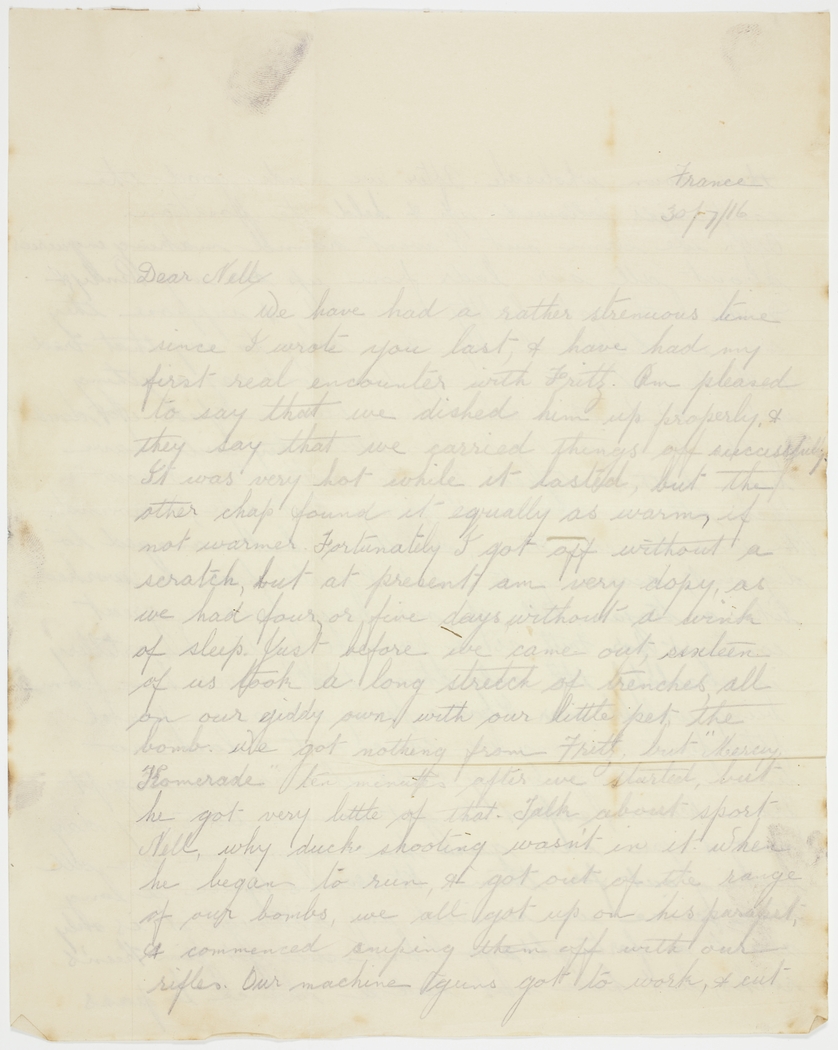 France
30/7/16
Dear Nell
We have had a rather strenuous time
since I wrote you last, & have had my
first real encounter with Fritz. Am pleased
to say that we dished him up properly, &
they say that we carried things off successfully.
It was very hot while it lasted, but the
other chap found it equally as warm, if
not warmer. Fortunately I got off without a
scratch, but at present am very dopy, as
we had four, or five days without a wink
of sleep. Just before we came out, sixteen
of us took a long stretch of trenches all
on our giddy own, with our little pet, the
bomb. We got nothing from Fritz, but "Mercy
Komerade" ten minutes after we started, but
he got very little of that. Talk about sport
Nell, why duck shooting wasn't in it. When
he began to run, & got out of the range
of our bombs, we all got up on his parapet,
& commenced sniping them off with our
rifles. Our machine guns got to work, & cut